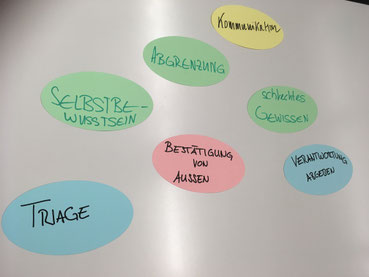 Kommunikation
ABGRENZUNG
SELBSTBE-
WUSSTSEIN
schlechtes
GEWISSEN
BESTÄTIGUNG
VON
AUSSEN
VERANTWORTUNG
ABGEBEN
TRIAGE